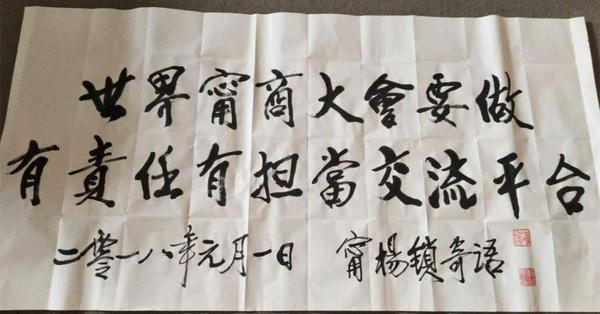 世界甯商大會要做
有責任有担當交流平台
二零一八年元月一日 甯楊鎖寄语